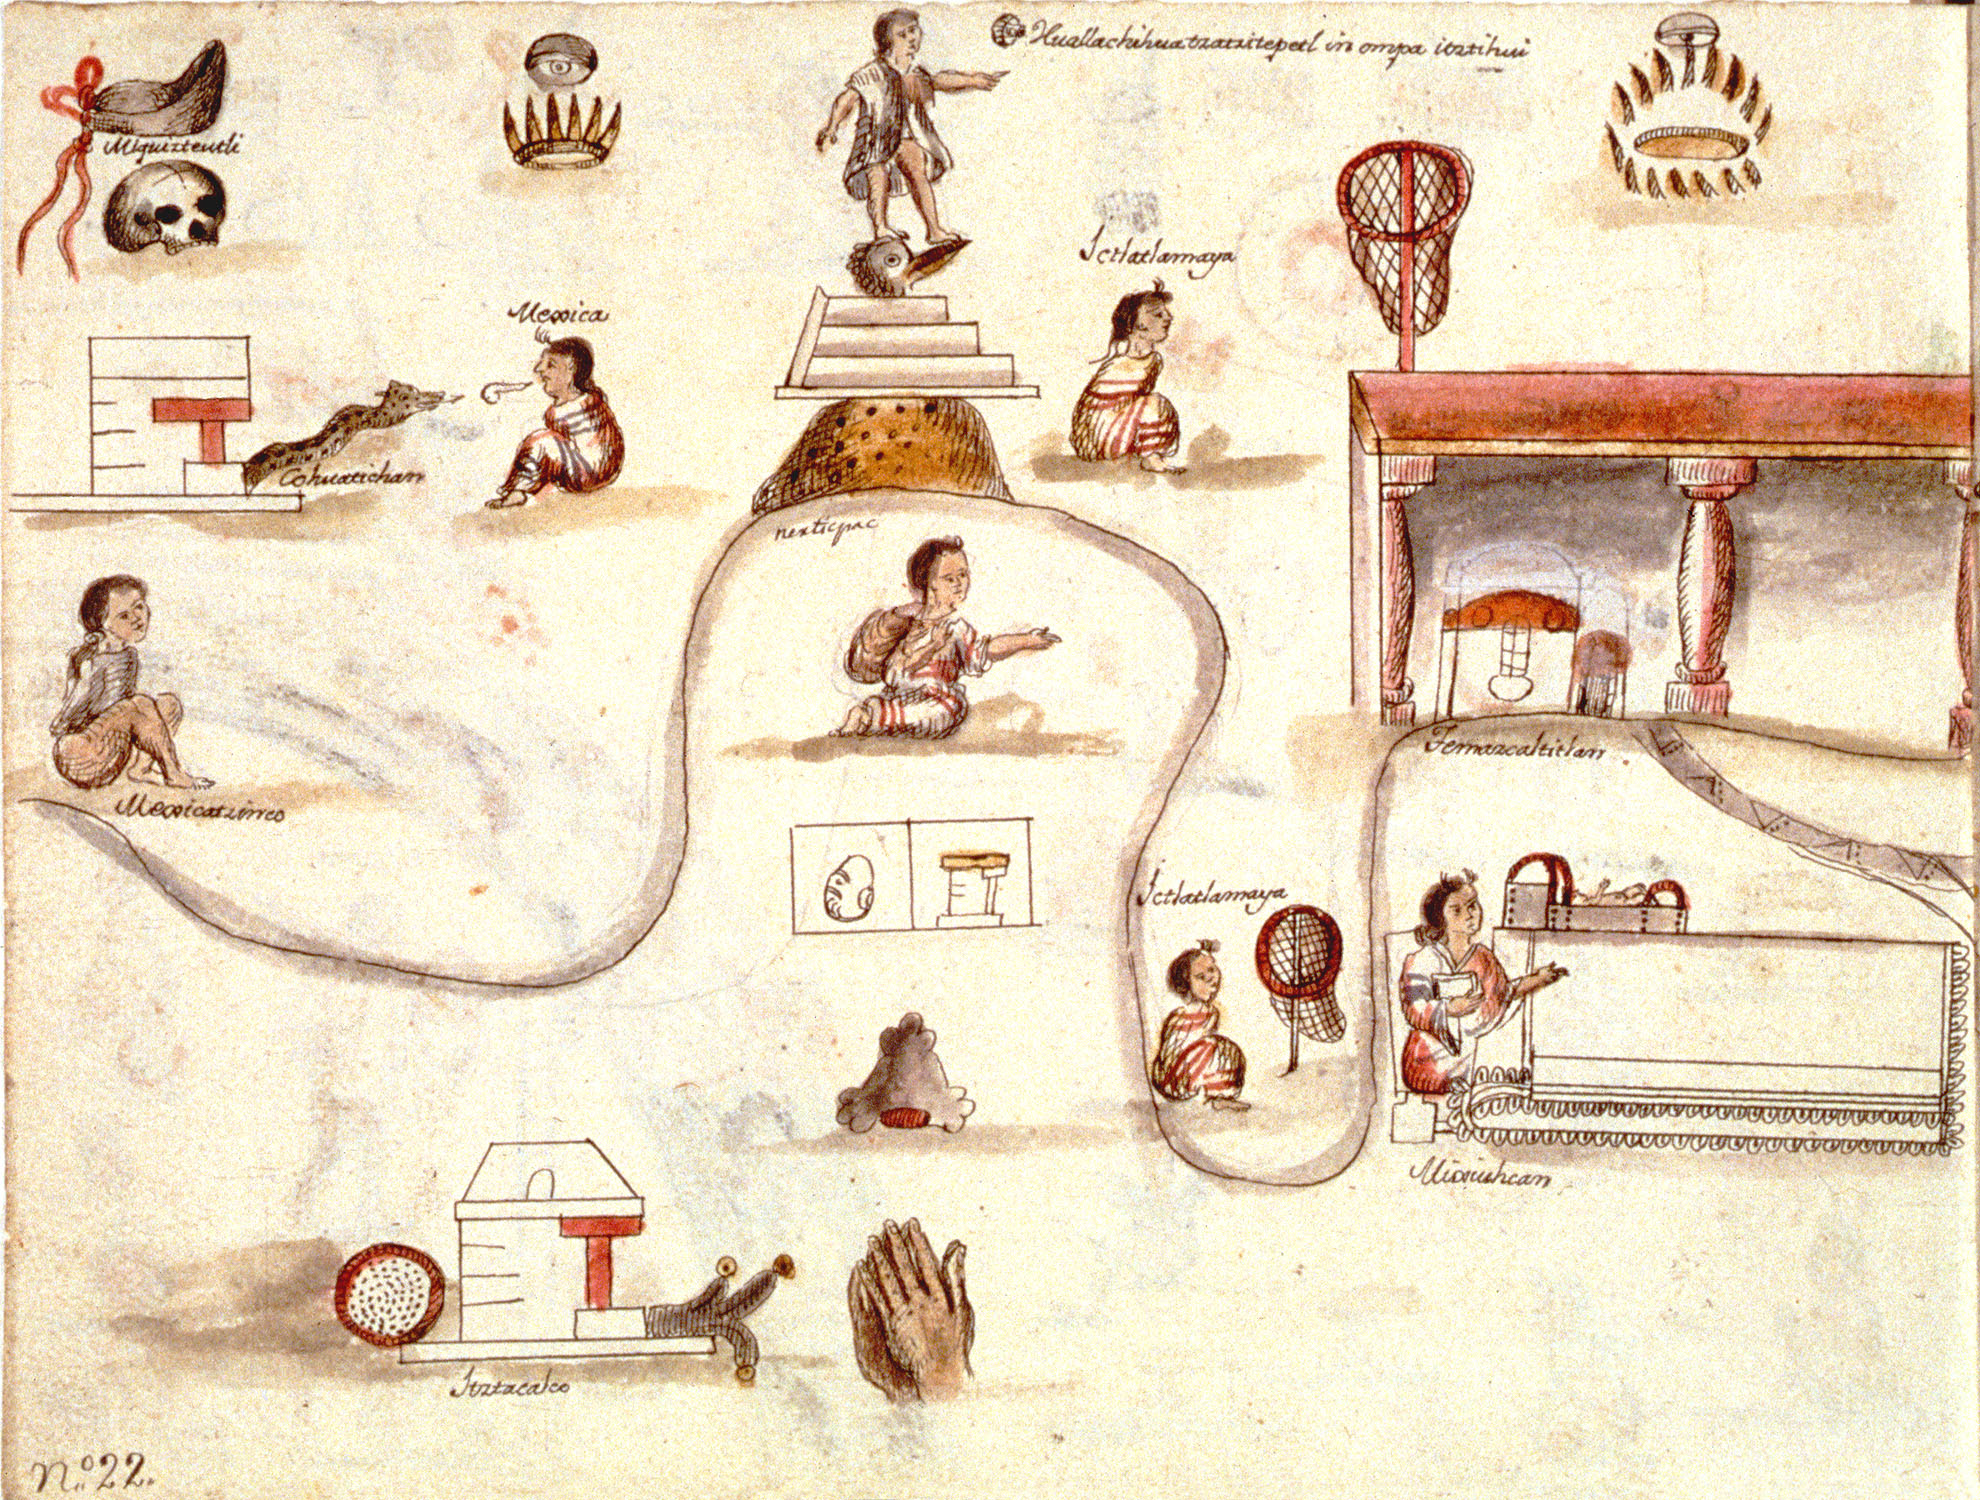 Huallachihuatzatzitepetl in ompa itztihui
Miquizteutli
Ictlatlamaya
Mexica
Cohuatichan
nexticpac
Temazcaltitlan
Mexicatzinco
Ictlatlamaya
Mixiuhcan
Itztacalco
N.º 22.